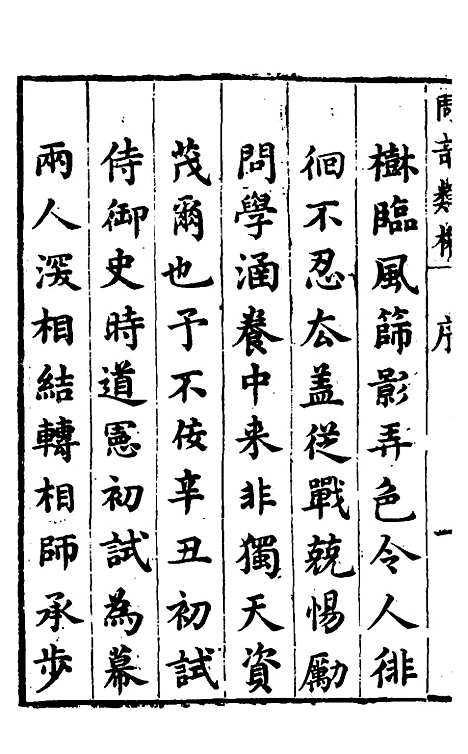 樹臨風篩影弄色令人徘
徊不忍厺盖從戰兢惕厲
問學涵養中来非獨天資
茂爾也予不佞辛丑初試
侍御史時道憲初試為幕
兩人深相結轉相師承步
序
一